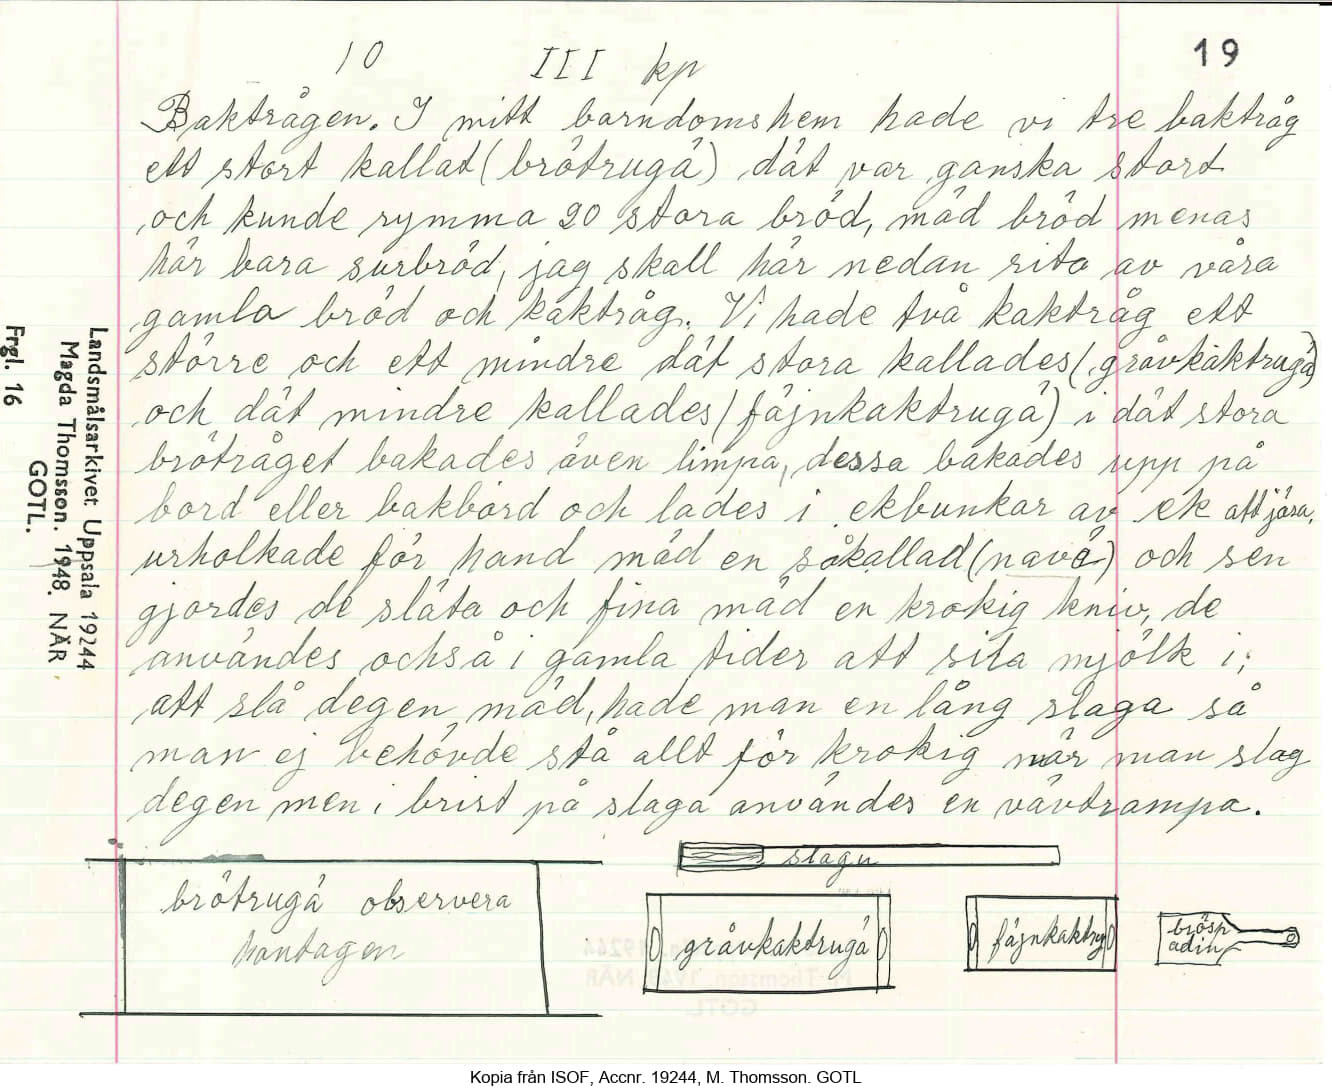 10 III kp 19
Baktrågen. I mitt barndomshem hade vi tre baktråg
ett stort kallat (brötrugä) dät var ganska stort
och kunde rymma 20 stora bröd, mäd bröd menas
här bara surbröd, jag skall här nedan rita av våra
gamla bröd och kaktråg. Vi hade två kaktråg ett
större och ett mindre dät stora kallades (gråvkaktrugä)
och dät mindre kallades (fäjnkaktrugä) i dät stora
brötråget bakades även limpa, dessa bakades upp på
bord eller bakbord och lades i ekbunkar av ek att jäsa,
urholkade för hand mäd en såkallad (navä) och sen
gjordes de släta och fina mäd en krokig kniv, de
användes också i gamla tider att sila mjölk i,
att slå degen mäd, hade man en lång slaga så
man ej behövde stå allt för krokig når man slag
degen men i brist på slaga användes en vävtrampa.
slagu
brötrugä observera
hantagen
gråvkaktrugä
fäjnkaktrug
brösp
adin
Landsmålsarkivet Uppsala 19244
Magda Thomsson. 1948. NÄR
GOTL.
Frgl. 16
Kopia från ISOF, Accnr. 19244, M. Thomsson. GOTL